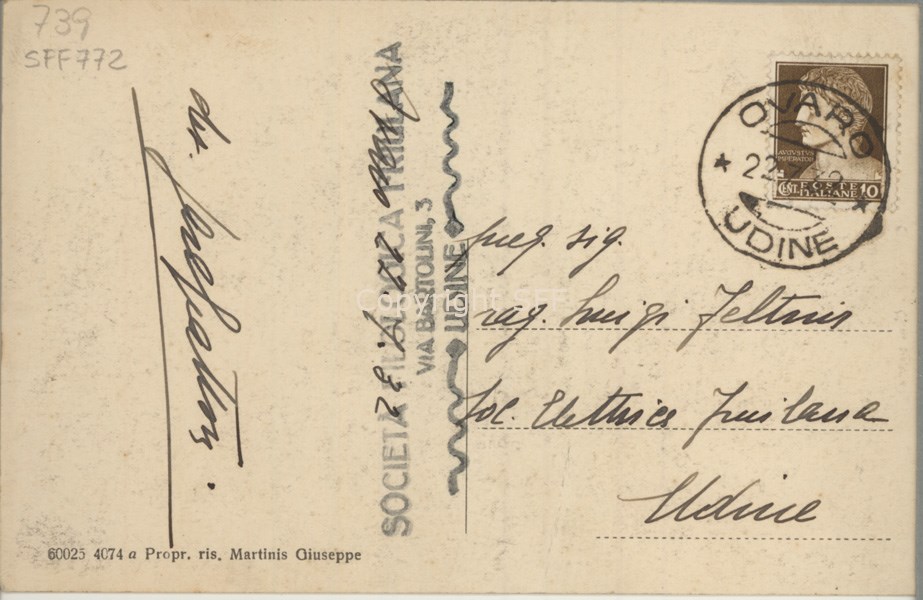 739
SFF772
OVARO
22
UDINE
AVGVSTVS
IMPERATOR
CENT. POSTE
ITALIANE 10
SOCIETÀ FILOLOGICA FRIULANA
VIA BARTOLINI, 3
UDINE
Copyright SFF
preg. sig.
rag. Luigi Feltrin
Soc. Elettrica Friulana
Udine
60025 4074 a Propr. ris. Martinis Giuseppe